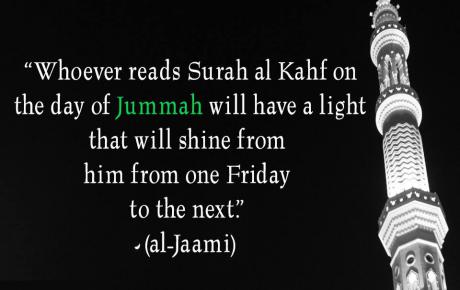 “Whoever reads Surah al Kahf on
the day of Jummah will have a light
that will shine from
him from one Friday
to the next.”
- (al-Jaami)